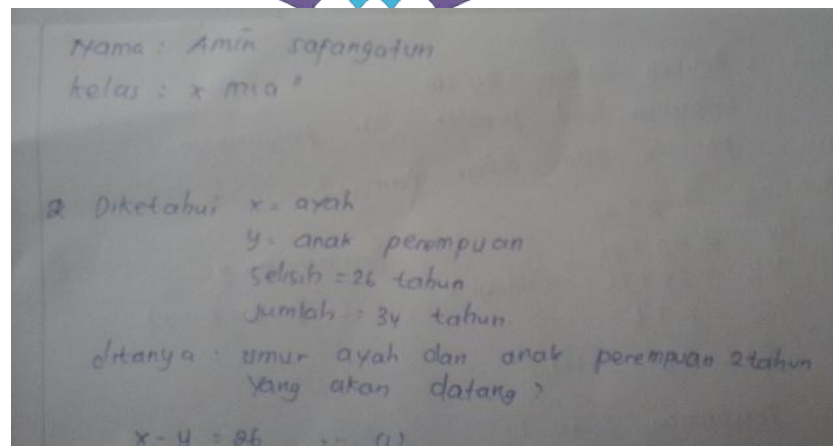 Nama : Amin sapangatun
kelas : x mia
2 Diketahui x = ayah
y = anak perempuan
selisih = 26 tahun
Jumlah = 34 tahun
ditanya : umur ayah dan anak perempuan 2 tahun
yang akan datang ?
x - y = 26 ... (1)